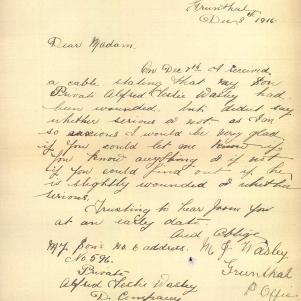 Grunthal
Dec 8th 1916
Dear Madam.
On Dec 7th I received
a cable stating that my Son
Private Alfred Leslie Wasley had
been wounded. but didnt say
whether serious or not as I am
so anxious I would be very glad
if you could let me know if
you know anything & if not
if you could find out if he
is slightly wounded or whether
serious.
Trusting to hear from you
at an early date
And Oblige
My Son's No & address. M J Wasley
No 596. Grunthal
Private P. Office
Alfred Leslie Wasley
D. Company